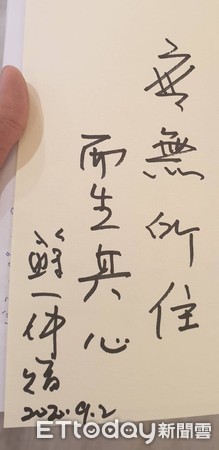 應無所住
而生其心
蘇一仲
2020.9.2
ETtoday新聞雲